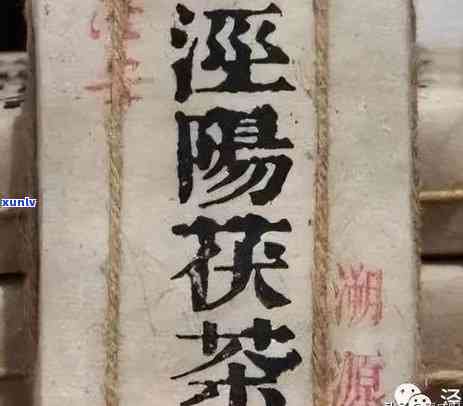 涇陽茯茶
溯源
xunlv
泾